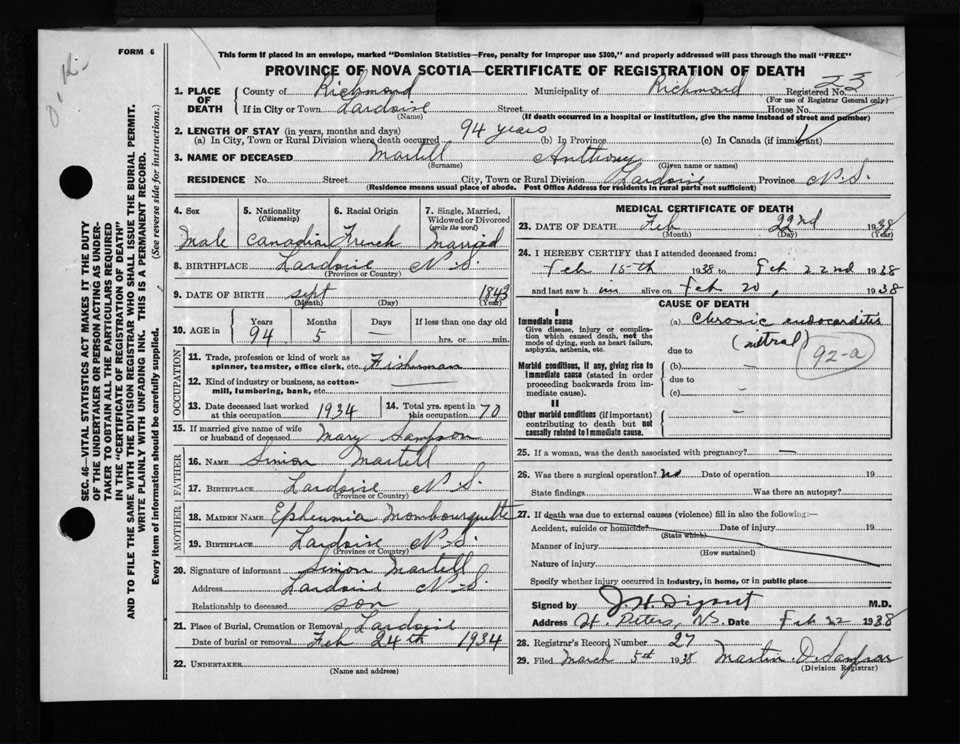 FORM 6
O.K.
This form if placed in an envelope, marked "Dominion Statistics—Free, penalty for improper use $300," and properly addressed will pass through the mail "FREE"
PROVINCE OF NOVA SCOTIA—CERTIFICATE OF REGISTRATION OF DEATH
1. PLACE OF DEATH County of Richmond Municipality of Richmond Registered No. 23
(For use of Registrar General only)
If in City or Town Lardoise Street House No.
(Name) (If death occurred in a hospital or institution, give the name instead of street and number)
2. LENGTH OF STAY (in years, months and days)
(a) In City, Town or Rural Division where death occurred 94 years (b) In Province (c) In Canada (if immigrant)
3. NAME OF DECEASED Martell Anthony
(Surname) (Given name or names)
RESIDENCE No. Street City, Town or Rural Division Lardoise Province N.S.
(Residence means usual place of abode. Post Office Address for residents in rural parts not sufficient)
SEC. 46—VITAL STATISTICS ACT MAKES IT THE DUTY
OF THE UNDERTAKER OR PERSON ACTING AS UNDER-
TAKER TO OBTAIN ALL THE PARTICULARS REQUIRED
IN THE "CERTIFICATE OF REGISTRATION OF DEATH"
AND TO FILE THE SAME WITH THE DIVISION REGISTRAR WHO SHALL ISSUE THE BURIAL PERMIT.
WRITE PLAINLY WITH UNFADING INK. THIS IS A PERMANENT RECORD.
Every item of information should be carefully supplied. (See reverse side for instructions.)
4. Sex 5. Nationality (Citizenship) 6. Racial Origin 7. Single, Married, Widowed or Divorced (write the word)
Male Canadian French Married
8. BIRTHPLACE Lardoise N.S.
(Province or Country)
9. DATE OF BIRTH Sept 1843
(Month) (Day) (Year)
10. AGE in Years Months Days If less than one day old
94 5 — hrs. or min.
OCCUPATION
11. Trade, profession or kind of work as spinner, teamster, office clerk, etc. Fisherman
12. Kind of industry or business, as cotton-mill, lumbering, bank, etc. —
13. Date deceased last worked at this occupation 1934 14. Total yrs. spent in this occupation 70
15. If married give name of wife or husband of deceased Mary Sampson
FATHER
16. NAME Simon Martell
17. BIRTHPLACE Lardoise N.S.
(Province or Country)
MOTHER
18. MAIDEN NAME Epheumia Mombourquette
19. BIRTHPLACE Lardoise N.S.
(Province or Country)
20. Signature of informant Simon Martell
Address Lardoise N.S.
Relationship to deceased son
21. Place of Burial, Cremation or Removal Lardoise
Date of burial or removal Feb 24th 1934
22. UNDERTAKER
(Name and address)
MEDICAL CERTIFICATE OF DEATH
23. DATE OF DEATH Feb 22nd 1938
(Month) (Day) (Year)
24. I HEREBY CERTIFY that I attended deceased from:
Feb 15-th 1938 to Feb 22nd 1938
and last saw h im alive on Feb 20, 1938
CAUSE OF DEATH
I
Immediate cause
Give disease, injury or complication which caused death, not the mode of dying, such as heart failure, asphyxia, asthenia, etc.
(a) Chronic endocarditis
(mitral) 92-a
due to
Morbid conditions, if any, giving rise to immediate cause (stated in order proceeding backwards from immediate cause).
(b) —
due to
(c) —
II
Other morbid conditions (if important) contributing to death but not causally related to immediate cause.
—
25. If a woman, was the death associated with pregnancy? —
26. Was there a surgical operation? No Date of operation 19
State findings Was there an autopsy?
27. If death was due to external causes (violence) fill in also the following:—
Accident, suicide or homicide? Date of injury 19
(State which)
Manner of injury
(How sustained)
Nature of injury
Specify whether injury occurred in industry, in home, or in public place
Signed by M.D.
Address St. Peters, N.S. Date Feb 22 1938
28. Registrar's Record Number 27
29. Filed March 5th 1938 Martin D. Sampson
(Division Registrar)